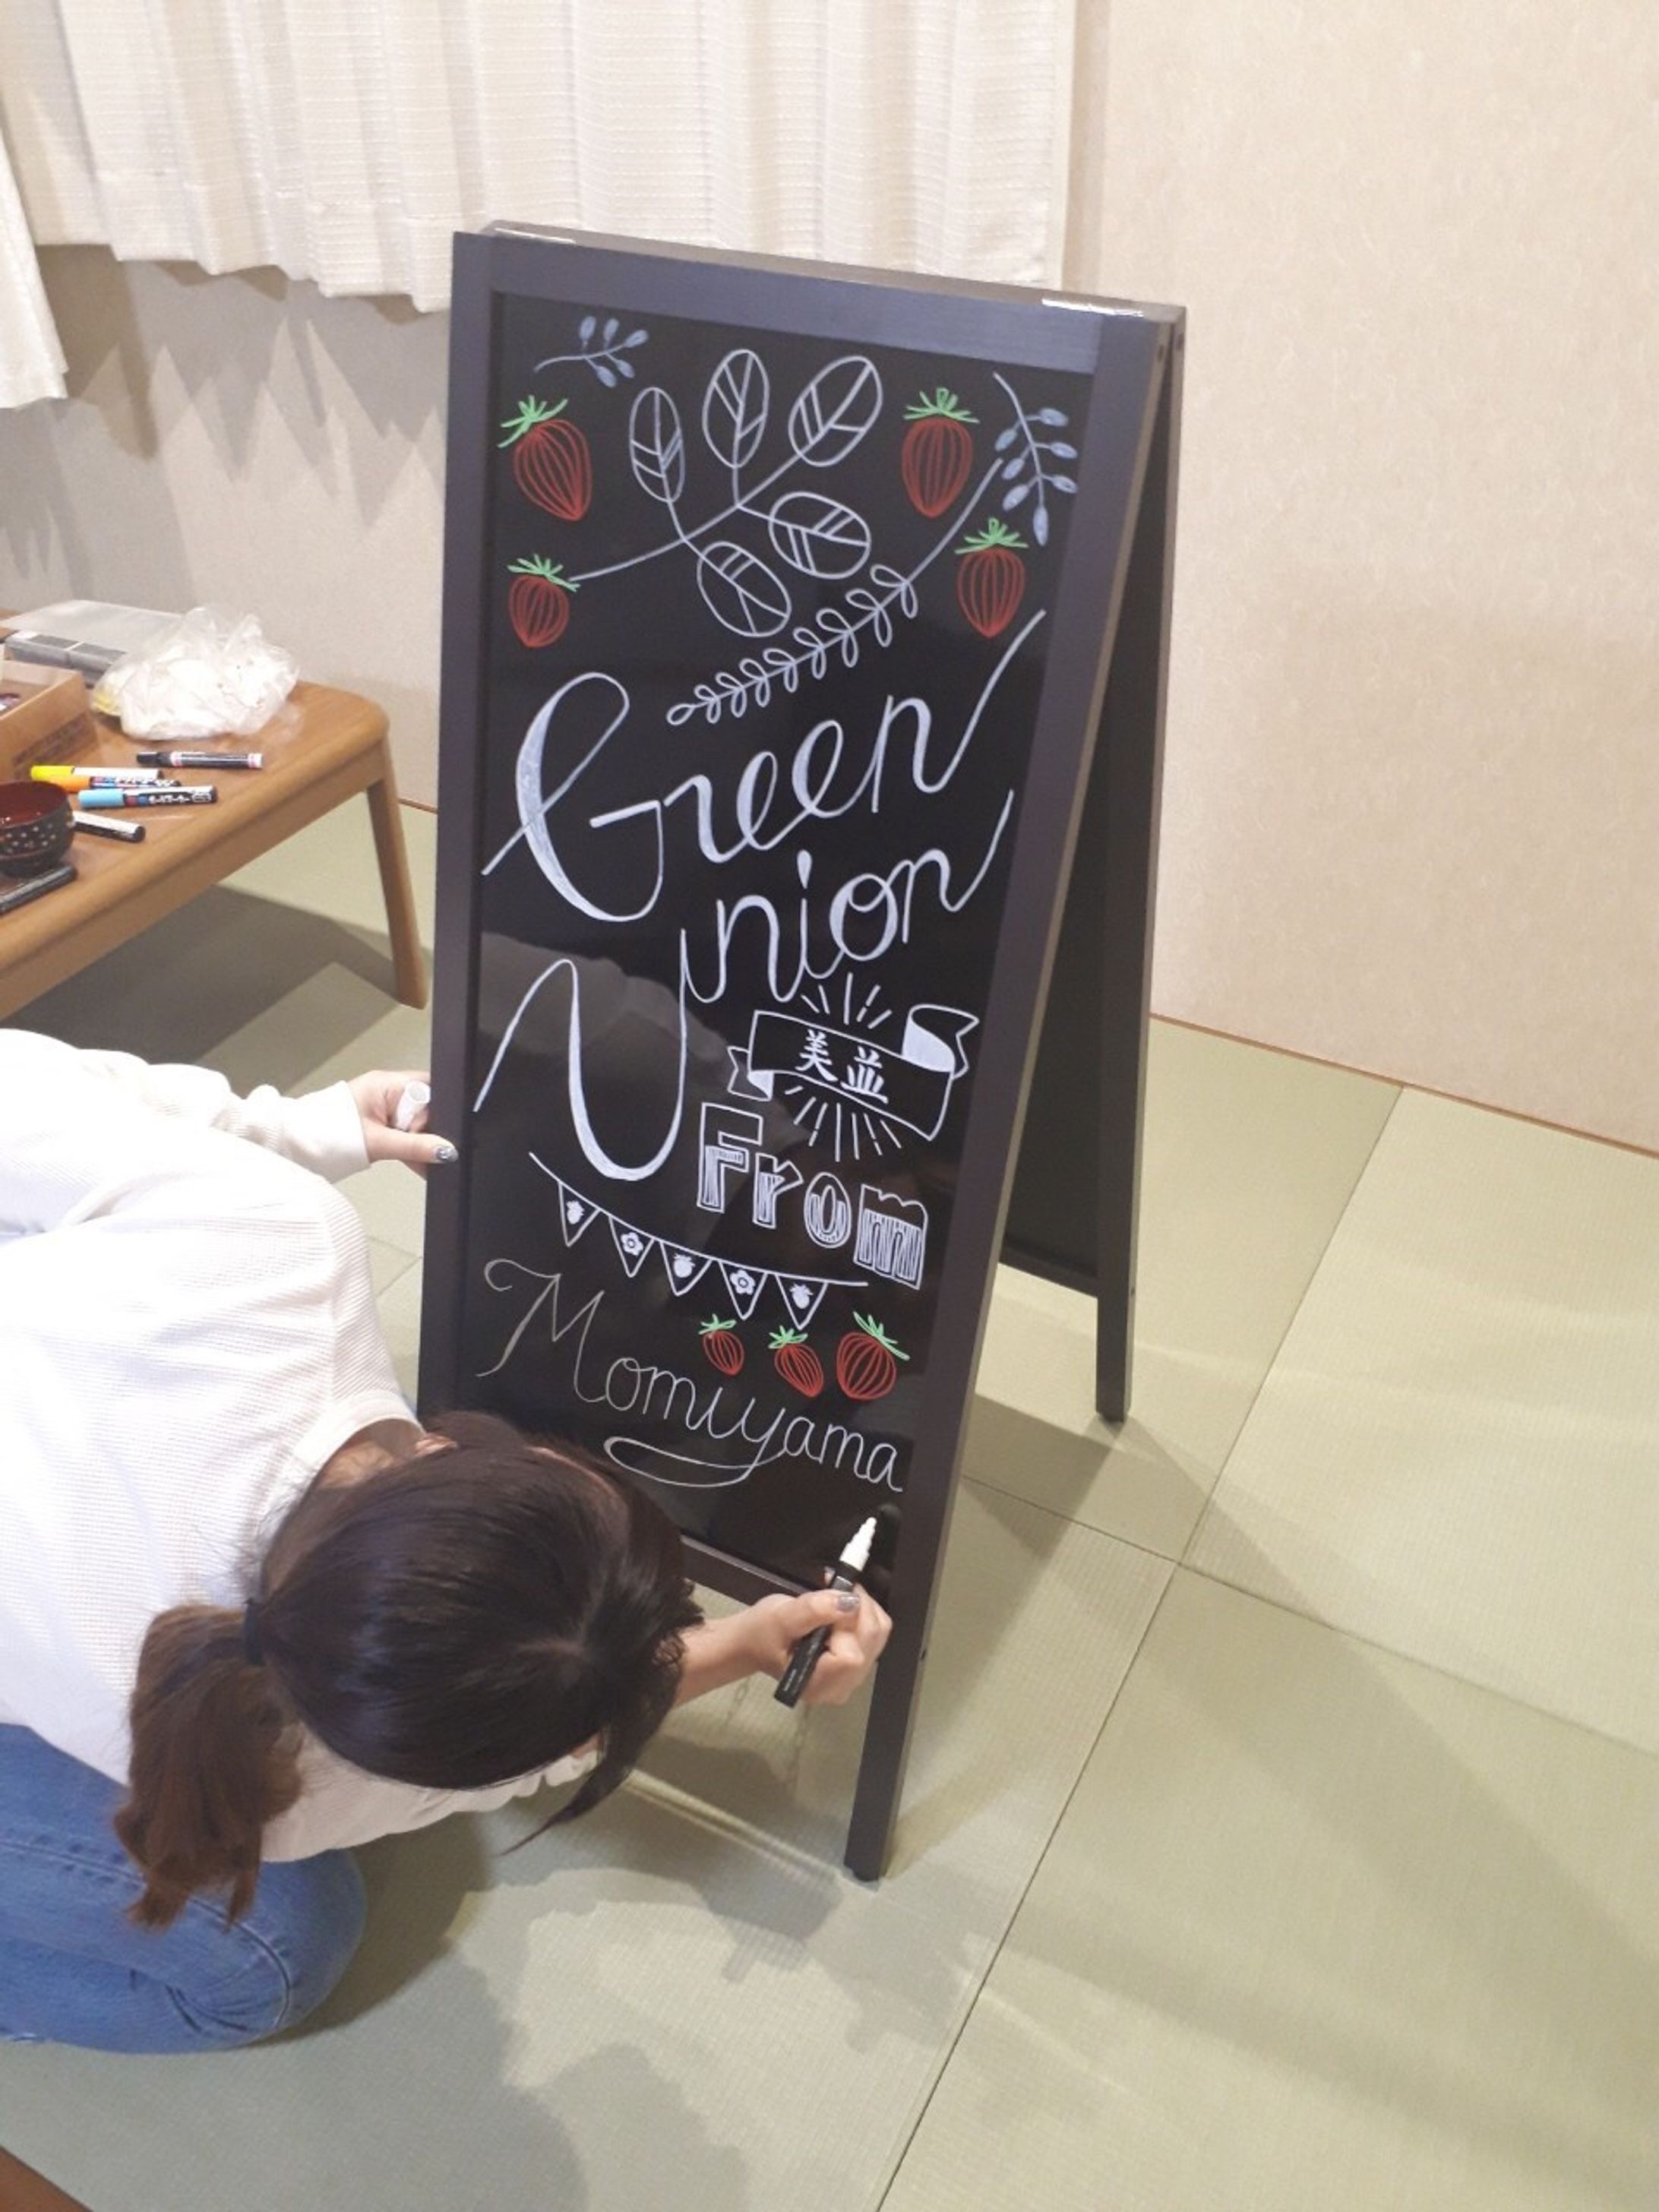 Green
Union
美並
From
Momiyama